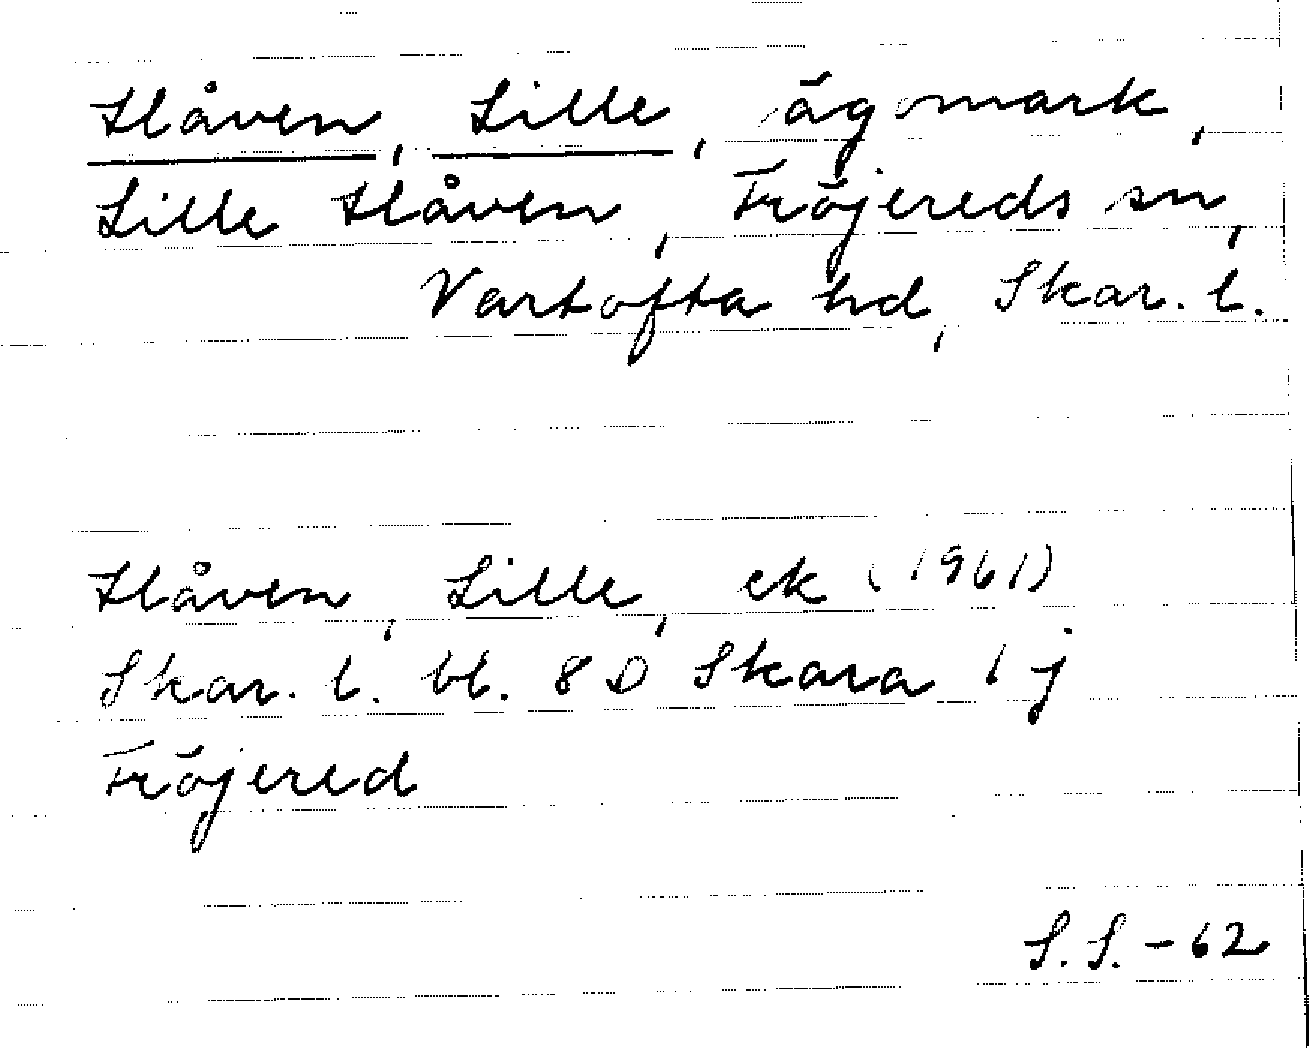 Håven, Lille, ägomark,
Lille Håven, Fröjereds sn,
Vartofta hd, Skar. l.
Håven, Lille, ek (1961)
Skar. l. bl. 8D Skara 1j
Fröjered
S.S. -62